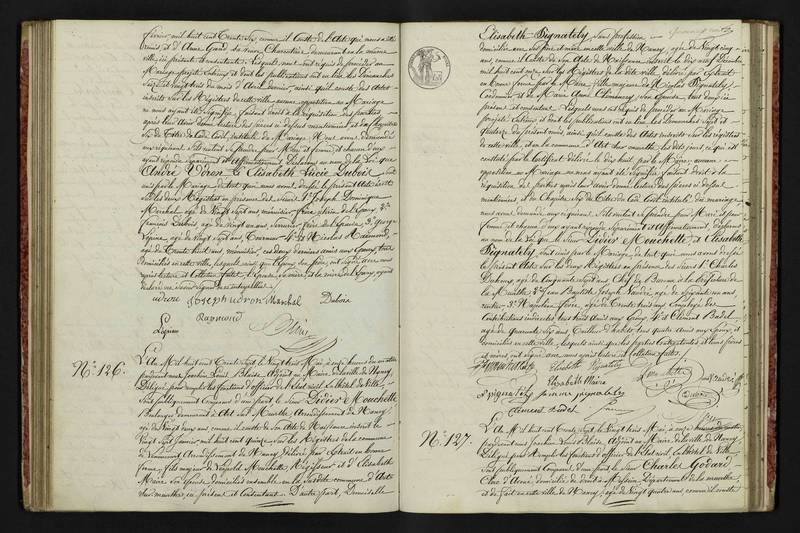 Février mil huit cent Trente Six, comme il Conste de l'Acte qui nous a été
remis et d'Anne Gand, sa veuve, Charcutière, demeurant en la même
ville, ici présente et consentante. Lesquels nous ont requis de procéder au
Mariage projeté entre eux et dont les publications ont eu lieu les Dimanches
Seize et Vingt trois du mois d'Avril dernier, ainsi qu'il conste des Actes
inscrits sur les Registres de cette ville; aucune opposition au Mariage
ne nous ayant été signifiée, faisant droit à la réquisition des parties
après leur avoir donné lecture des pièces ci dessus mentionnées et du Chapitre
Six du Titre du Code Civil, intitulé du Mariage. Nous avons demandé
aux requérans s'ils veulent se prendre pour Mari et femme, et chacun d'eux
ayant répondu séparément et Affirmativement, Déclarons au nom de la Loi que
André Vdron et Elisabeth Lucie Dubois sont
unis par le Mariage. De tout quoi nous avons dressé le présent Acte inscrit
sur les deux Registres en présence des Sieurs 1° Joseph Dominique
Marchal, âgé de Vingt Sept ans menuisier,
Dubois, âgé de Vingt un ans Serrurier, frère de l'Epouse, 3° George
Lignier, âgé de Vingt Sept ans, Tourneur, 4° et Nicolas Raimond,
âgé de Trente huit ans, menuisier, ces deux derniers amis aux Epoux, tous
domiciliés en cette ville, lesquels ainsi que l'Epoux, ont signé avec nous
après lecture et Collation faites, l'Epouse, sa mère, et la mère de l'Epoux, ayant
déclaré ne savoir signer de ce interpellées.
vdron Joseph vdron Marchal Dubois
Raymond
Lignier
Blaise
N°. 126.
L'An Mil huit cent Trente Sept, le Vingt trois Mai, à onze heures du matin
pardevant nous Joachim Louis Blaise, Adjoint au Maire de la ville de Nancy,
Délégué pour remplir les fonctions d'officier de l'état civil. En l'hôtel de Ville,
Sont publiquement Comparus d'une part le Sieur Didier Mouchette
Boulanger demeurant à Art sur Meurthe, Arrondissement de Nancy,
âgé de Vingt deux ans comme il conste de son Acte de Naissance inscrit le
Vingt Sept Janvier mil huit cent quinze sur les Registres de la commune
Arrondissement de Nancy délivré par Extrait en bonne
forme, fils majeur de Mouchette, Régisseur, et d'Elisabeth
Maire son Epouse domiciliés ensemble en la susdite commune d'Art
sur meurthe, ici présens et consentans. D'autre part, Demoiselle
Elisabeth Pignately, Sans profession
domiciliée avec ses père et mère en cette ville de Nancy, âgée de Vingt cinq
ans, comme il Conste de son Acte de Naissance inscrit le dix neuf
mil huit cent onze, sur les Registres de la dite ville, délivré par Extrait
en bonne forme par le Maire, fille majeure de Nicolas Pignately,
Cordonnier, et de Marie Anne son Epouse tous deux ici
présens et consentans. Lesquels nous ont requis de procéder au Mariage
projeté entre eux et dont les publications ont eu lieu les Dimanches Sept et
quatorze du présent mois ainsi qu'il conste des Actes inscrits sur les registres
de cette ville, et en la commune d'Art sur meurthe les dits jours, ce qui est
constaté par le Certificat délivré le dix huit par le Maire; aucune
opposition au Mariage ne nous ayant été signifiée, faisant droit à la
réquisition des parties après leur avoir donné lecture des pièces ci dessus
mentionnées et du Chapitre Six du Titre du Code Civil intitulé du Mariage
nous avons demandé aux requérans s'ils veulent se prendre pour Mari et pour
femme, et chacun d'eux ayant répondu séparément et Affirmativement, Déclarons
au nom de la Loi que le Sieur Didier Mouchette et Elisabeth
Pignately, sont unis par le Mariage, de tout quoi nous avons dressé
le présent Acte sur les deux Registres en présence des Sieurs 1° Charles
Dubourg, âgé de Cinquante Sept ans, Chef de Bureau à la
de la Meurthe, 2° Jean Baptiste Joseph Vaudré, âgé de Soixante un ans,
rentier, 3° Napoléon Ferre, âgé de Trente trois ans Employé des
Contributions indirectes, tous trois amis aux Epoux, 4° et Clément Badel
âgé de quarante Six ans, Tailleur d'habits,
domiciliés en cette ville, lesquels ainsi que les parties contractantes et leurs pères
et mères ont signé avec nous après lecture et collation faites.
Elisabeth Pignately
Elisabeth Maire
pignately
Clément Badel
Blaise
N°. 127.
L'An Mil huit cent Trente Sept, le Vingt trois Mai, à onze
pardevant nous Joachim Louis Blaise, Adjoint au Maire de la ville de Nancy
Délégué pour remplir les fonctions d'officier de l'état civil. En l'hôtel de Ville,
Sont publiquement Comparus d'une part le Sieur Charles Godard
domicilié de droit à Département de la meurthe,
et de fait en cette ville de Nancy, âgé de Vingt quatre ans comme il conste